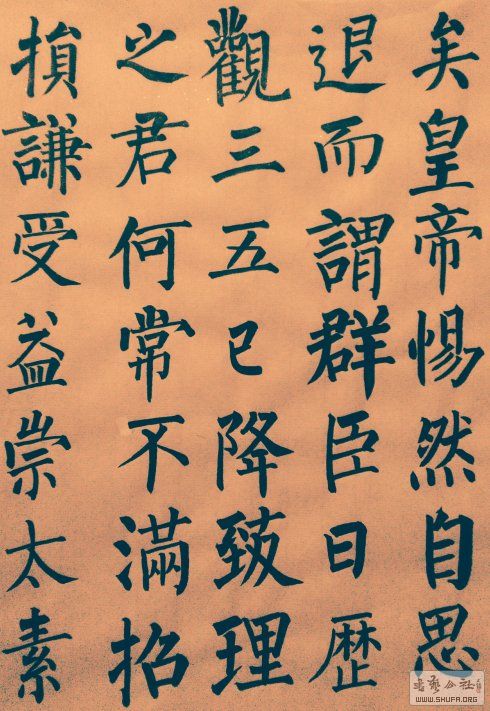 矣皇帝惕然自思
退而謂群臣曰歷
觀三五已降致理
之君何常不滿招
損謙受益崇太素
WWW.SHUFA.ORG